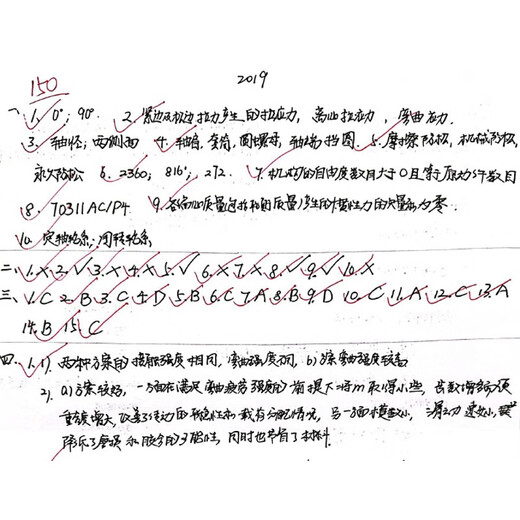 150
2019
一、1. 0°; 90°. 2. 紧边和松边拉力产生的拉应力, 离心拉应力, 弯曲应力.
3. 轴径; 两侧面 4. 轴肩, 套筒, 圆螺母, 轴端挡圈. 5. 摩擦防松, 机械防松,
永久防松 6. 2360; 816; 272. 7. 机构的自由度数目大于0且等于原动件数目
8. 70311AC/P4 9. 各偏心质量产生的惯性力的矢量和为零.
10. 定轴轮系; 周转轮系
二、1. X 2. √ 3. X 4. X 5. √ 6. X 7. X 8. √ 9. √ 10. X
三、1. C 2. B 3. C 4. D 5. B 6. C 7. A 8. B 9. D 10. C 11. A 12. C 13. A
14. B 15. C
四、1. 1). 两种方案的接触强度相同, 弯曲强度不同, b)方案弯曲强度较高
2). a)方案较好, 一方面在满足弯曲疲劳强度的前提下将m取得小些, 齿数增多
重合度增大, 改善了传动的平稳性和载荷分配情况, 另一方面模数小, 滑动速度小,
降低了磨损和胶合的可能性, 同时也节省了材料.